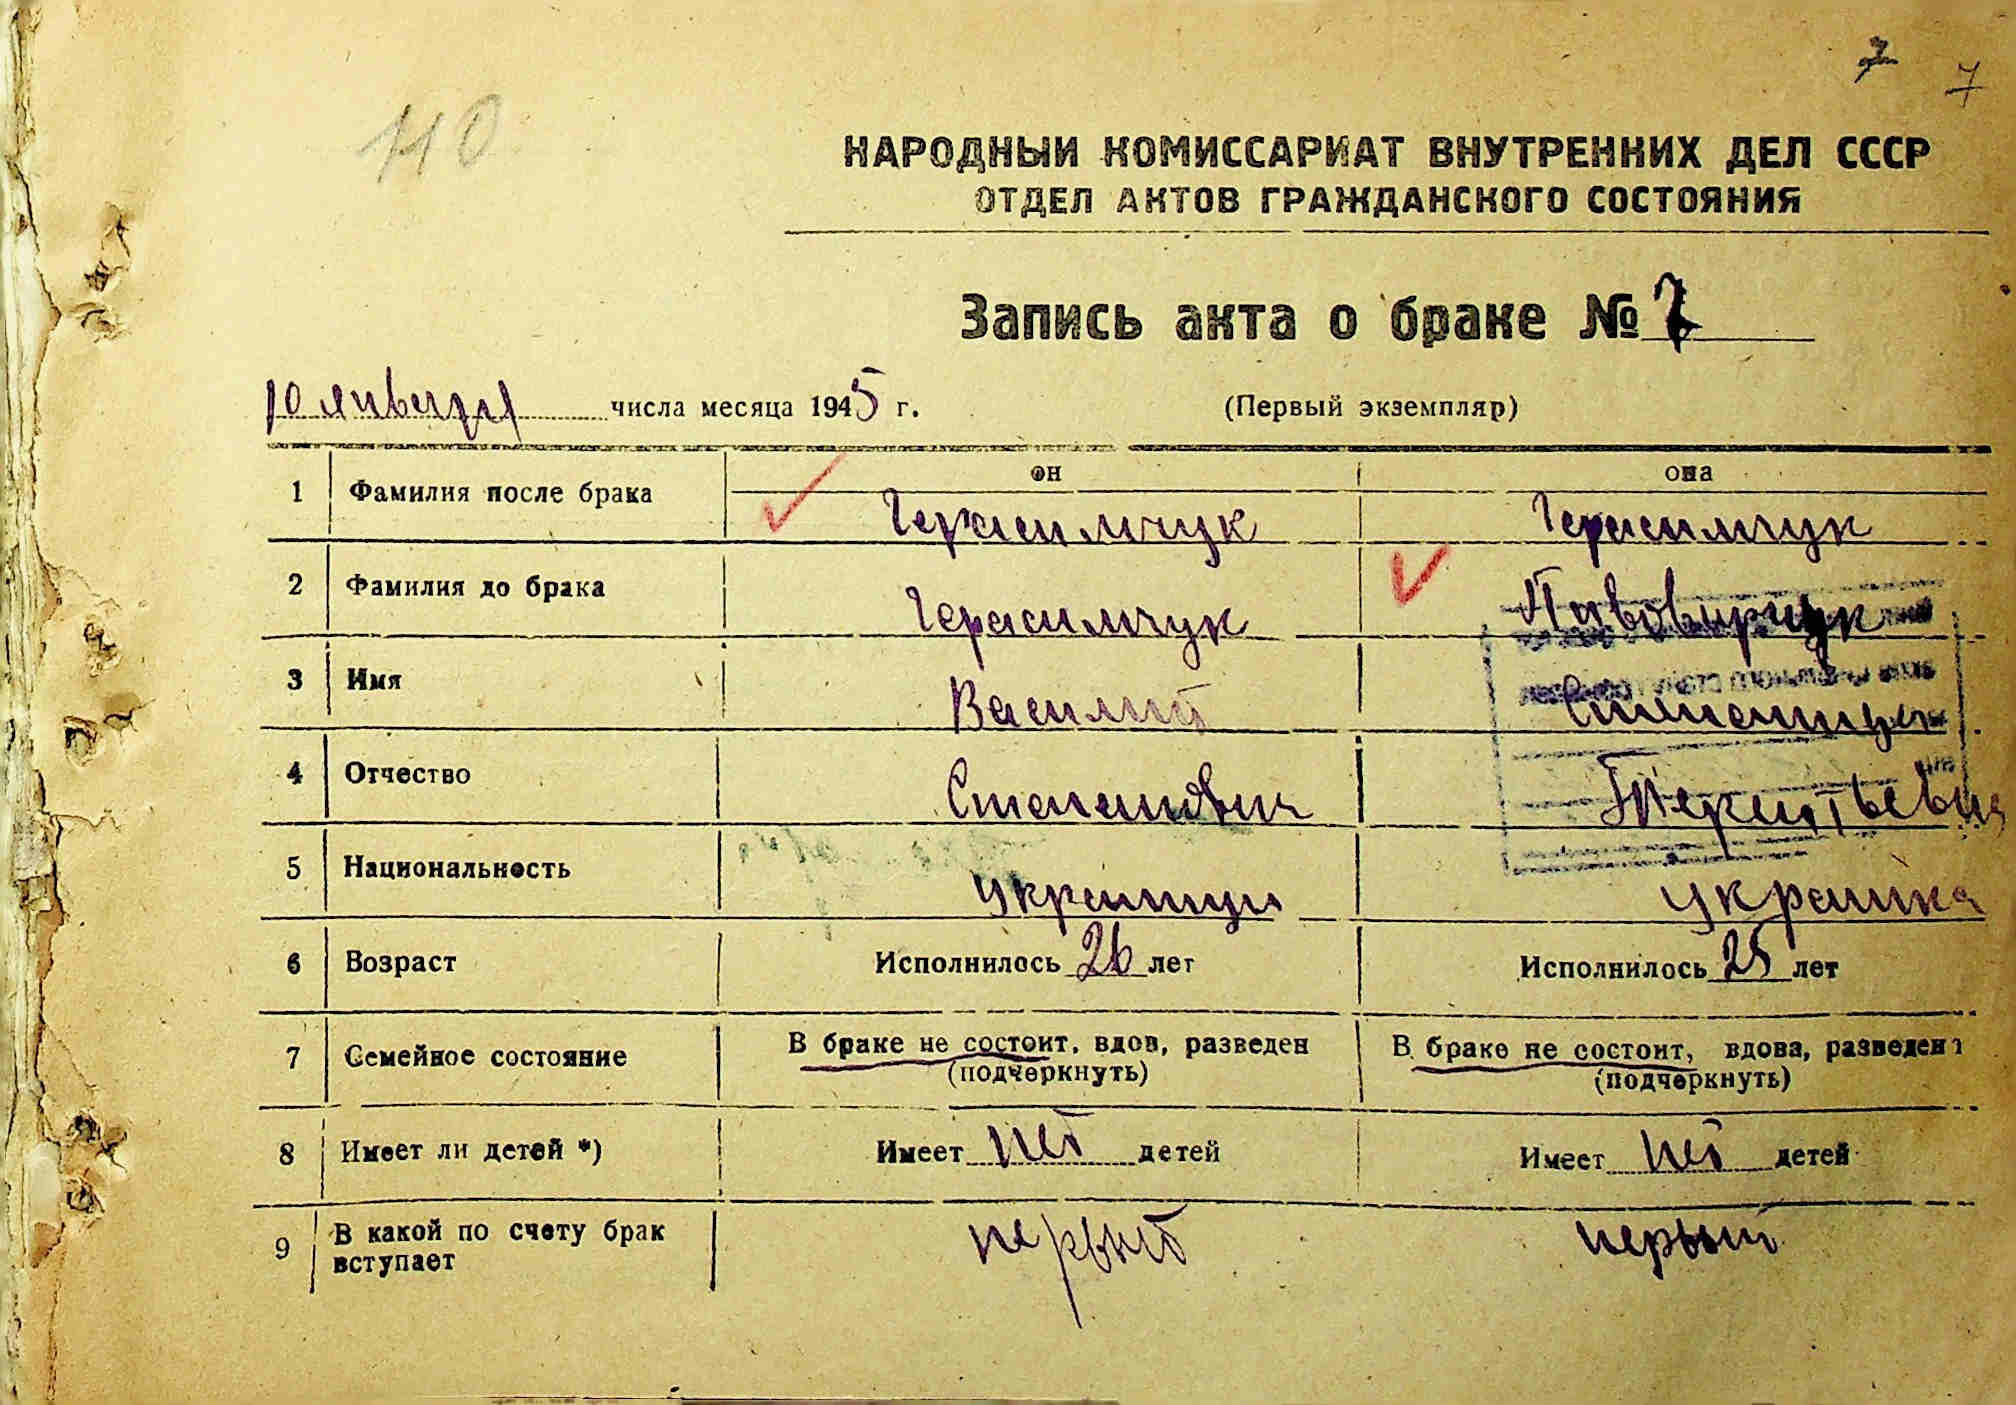 7 7
110
НАРОДНЫЙ КОМИССАРИАТ ВНУТРЕННИХ ДЕЛ СССР
ОТДЕЛ АКТОВ ГРАЖДАНСКОГО СОСТОЯНИЯ
Запись акта о браке № 7
10 января числа месяца 1945 г. (Первый экземпляр)
он она
1 Фамилия после брака Герасимчук Герасимчук
2 Фамилия до брака Герасимчук
3 Имя Василий
4 Отчество Степанович Терентьевна
5 Национальность украинец украинка
6 Возраст Исполнилось 26 лет Исполнилось 25 лет
7 Семейное состояние В браке не состоит, вдов, разведен В браке не состоит, вдова, разведена
(подчеркнуть) (подчеркнуть)
8 Имеет ли детей *) Имеет нет детей Имеет нет детей
9 В какой по счету брак вступает первый первый